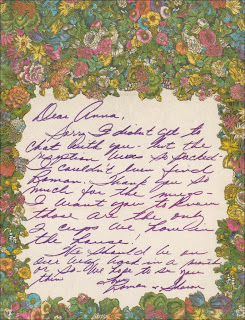 Dear Anna,
Sorry I didn't get to
chat with you - but the
reception was so packed
I couldn't even find
Roman. Thank you so
much for the cups -
I want you to know
those are the only
cups we have in
the house!
We should be on
our way in a month
or so - We hope to see you
then
Roman & Sharon